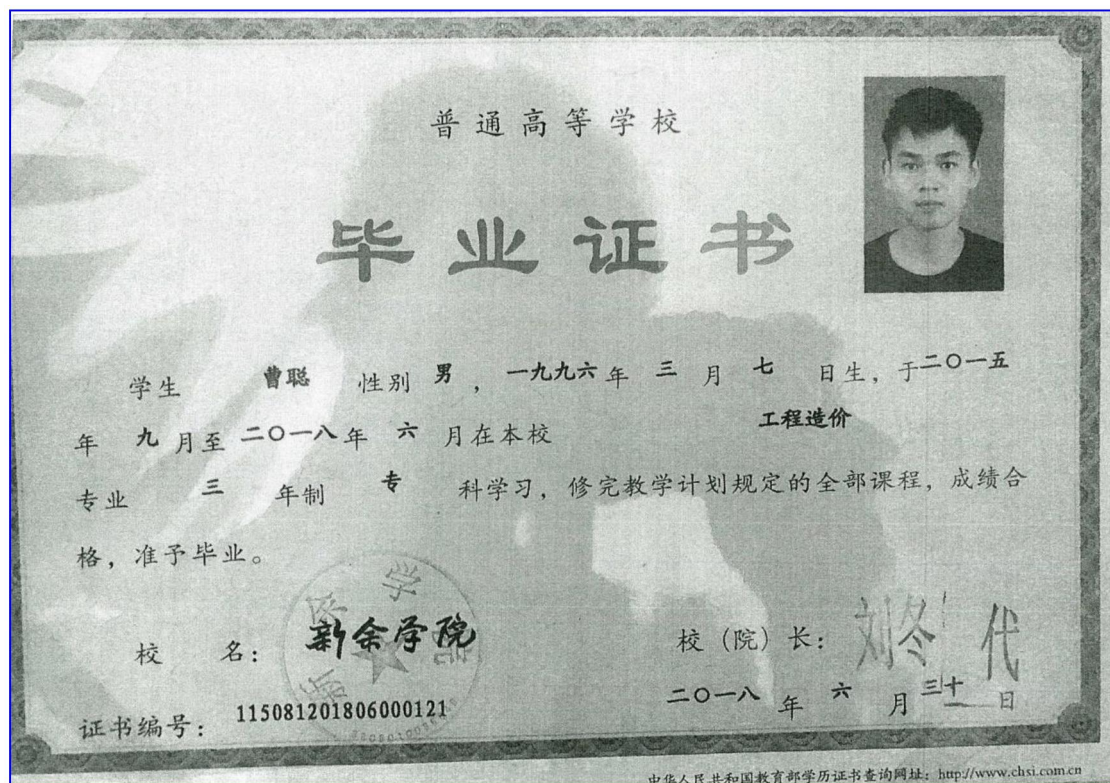 普通高等学校
毕业证书
学生 曹聪 性别 男 ，一九九六 年 三 月 七 日生，于二〇一五
年 九 月至 二〇一八 年 六 月在本校 工程造价
专业 三 年制 专 科学习，修完教学计划规定的全部课程，成绩合
格，准予毕业。
校 名： 新余学院 校（院）长：
二〇一八 年 六 月 三十 日
证书编号： 115081201806000121
中华人民共和国教育部学历证书查询网址：http://www.chsi.com.cn